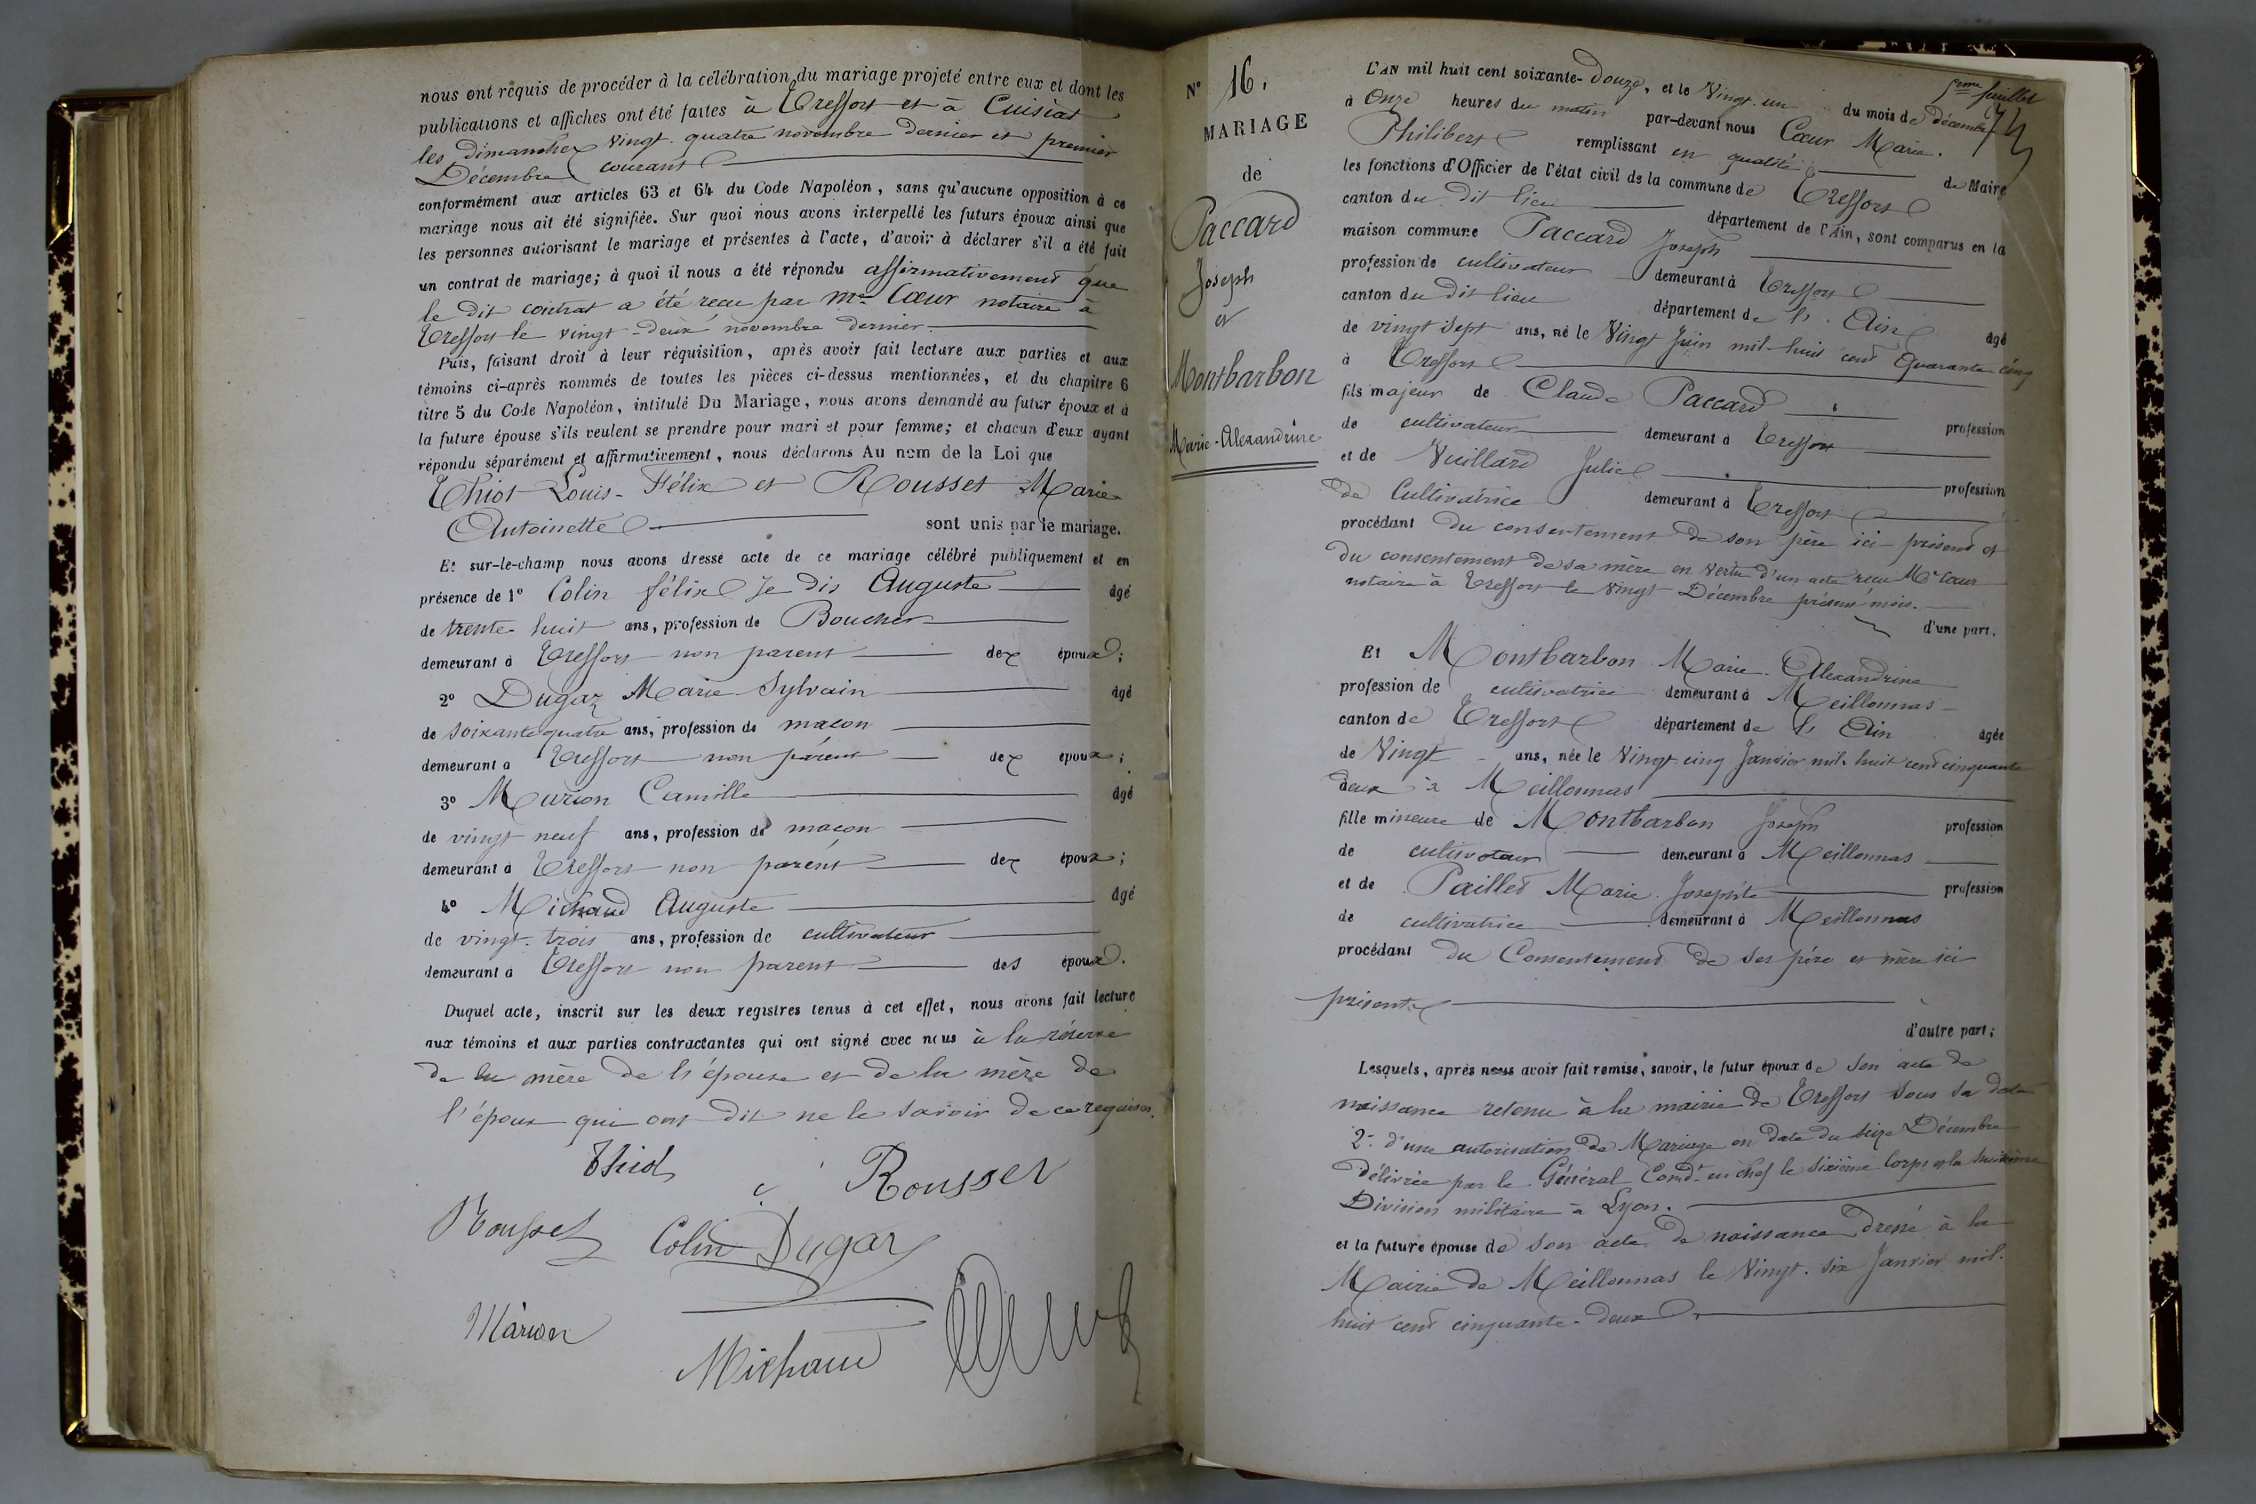 nous ont requis de procéder à la célébration du mariage projeté entre eux et dont les
publications et affiches ont été faites à Treffort et à Cuisiat
les dimanches vingt-quatre novembre dernier et premier
Décembre courant
conformément aux articles 63 et 64 du Code Napoléon, sans qu'aucune opposition à ce
mariage nous ait été signifiée. Sur quoi nous avons interpellé les futurs époux ainsi que
les personnes autorisant le mariage et présentes à l'acte, d'avoir à déclarer s'il a été fait
un contrat de mariage; à quoi il nous a été répondu affirmativement que
le dit contrat a été reçu par Me Cœur notaire à
Treffort le vingt-deux novembre dernier.
Puis, faisant droit à leur réquisition, après avoir fait lecture aux parties et aux
témoins ci-après nommés de toutes les pièces ci-dessus mentionnées, et du chapitre 6
titre 5 du Code Napoléon, intitulé Du Mariage, nous avons demandé au futur époux et à
la future épouse s'ils veulent se prendre pour mari et pour femme; et chacun d'eux ayant
répondu séparément et affirmativement, nous déclarons Au nom de la Loi que
Thiot Louis-Félix et Rousset Marie
Antoinette sont unis par le mariage.
Et sur-le-champ nous avons dressé acte de ce mariage célébré publiquement et en
présence de 1° Colin félix Je dis Auguste âgé
de trente-huit ans, profession de Boucher
demeurant à Treffort non parent des époux;
2° Dugaz Marie Sylvain âgé
de soixante quatre ans, profession de maçon
demeurant à Treffort non parent des époux;
3° Marion Camille âgé
de vingt neuf ans, profession de maçon
demeurant à Treffort non parent des époux;
4° Michaud Auguste âgé
de vingt-trois ans, profession de cultivateur
demeurant à Treffort non parent des époux.
Duquel acte, inscrit sur les deux registres tenus à cet effet, nous avons fait lecture
aux témoins et aux parties contractantes qui ont signé avec nous à la réserve
de la mère de l'épouse et de la mère de
l'époux qui ont dit ne le savoir de ce requises.
Thiot Rousset
Rousset Colin Dugaz
Marion
Michaud
N° 16.
MARIAGE
de
Paccard
Joseph
et
Montbarbon
Marie-Alexandrine
feuillet
L'AN mil huit cent soixante-Douze, et le Vingt-un du mois de décembre
à Onze heures du matin par-devant nous Cœur Marie.
Philibert remplissant en qualité de Maire
les fonctions d'Officier de l'état civil de la commune de Treffort
canton du dit lieu département de l'Ain, sont comparus en la
maison commune Paccard Joseph
profession de cultivateur demeurant à Treffort
canton du Dit lieu département de l'Ain âgé
de vingt sept ans, né le Vingt Juin mil-huit cent Quarante cinq
à Treffort
fils majeur de Claude Paccard profession
de cultivateur demeurant à Treffort
et de Vuillard Julie profession
de Cultivatrice demeurant à Treffort
procédant du consentement de son père ici-présent et
du consentement de sa mère en vertu d'un acte reçu Me Cœur
notaire à Treffort le Vingt Décembre présent mois.
d'une part.
Et Montbarbon Marie-Alexandrine
profession de cultivatrice demeurant à Meillonnas
canton de Treffort département de l'Ain âgée
de Vingt ans, née le Vingt cinq Janvier mil-huit cent cinquante
deux à Meillonnas
fille mineure de Montbarbon Joseph profession
de cultivateur demeurant à Meillonnas
et de Paillet Marie-Josephte profession
de cultivatrice demeurant à Meillonnas
procédant du Consentement de ses père et mère ici
présents
d'autre part;
Lesquels, après nous avoir fait remise, savoir, le futur époux de son acte de
naissance retenu à la mairie de Treffort sous sa date
2° d'une autorisation de Mariage en date du seize Décembre
délivrée par le Général Comdt en chef le sixième Corps et la huitième
Division militaire à Lyon.
et la future épouse de son acte de naissance Dressé à la
Mairie de Meillonnas le Vingt-six Janvier mil-
huit cent cinquante-deux.